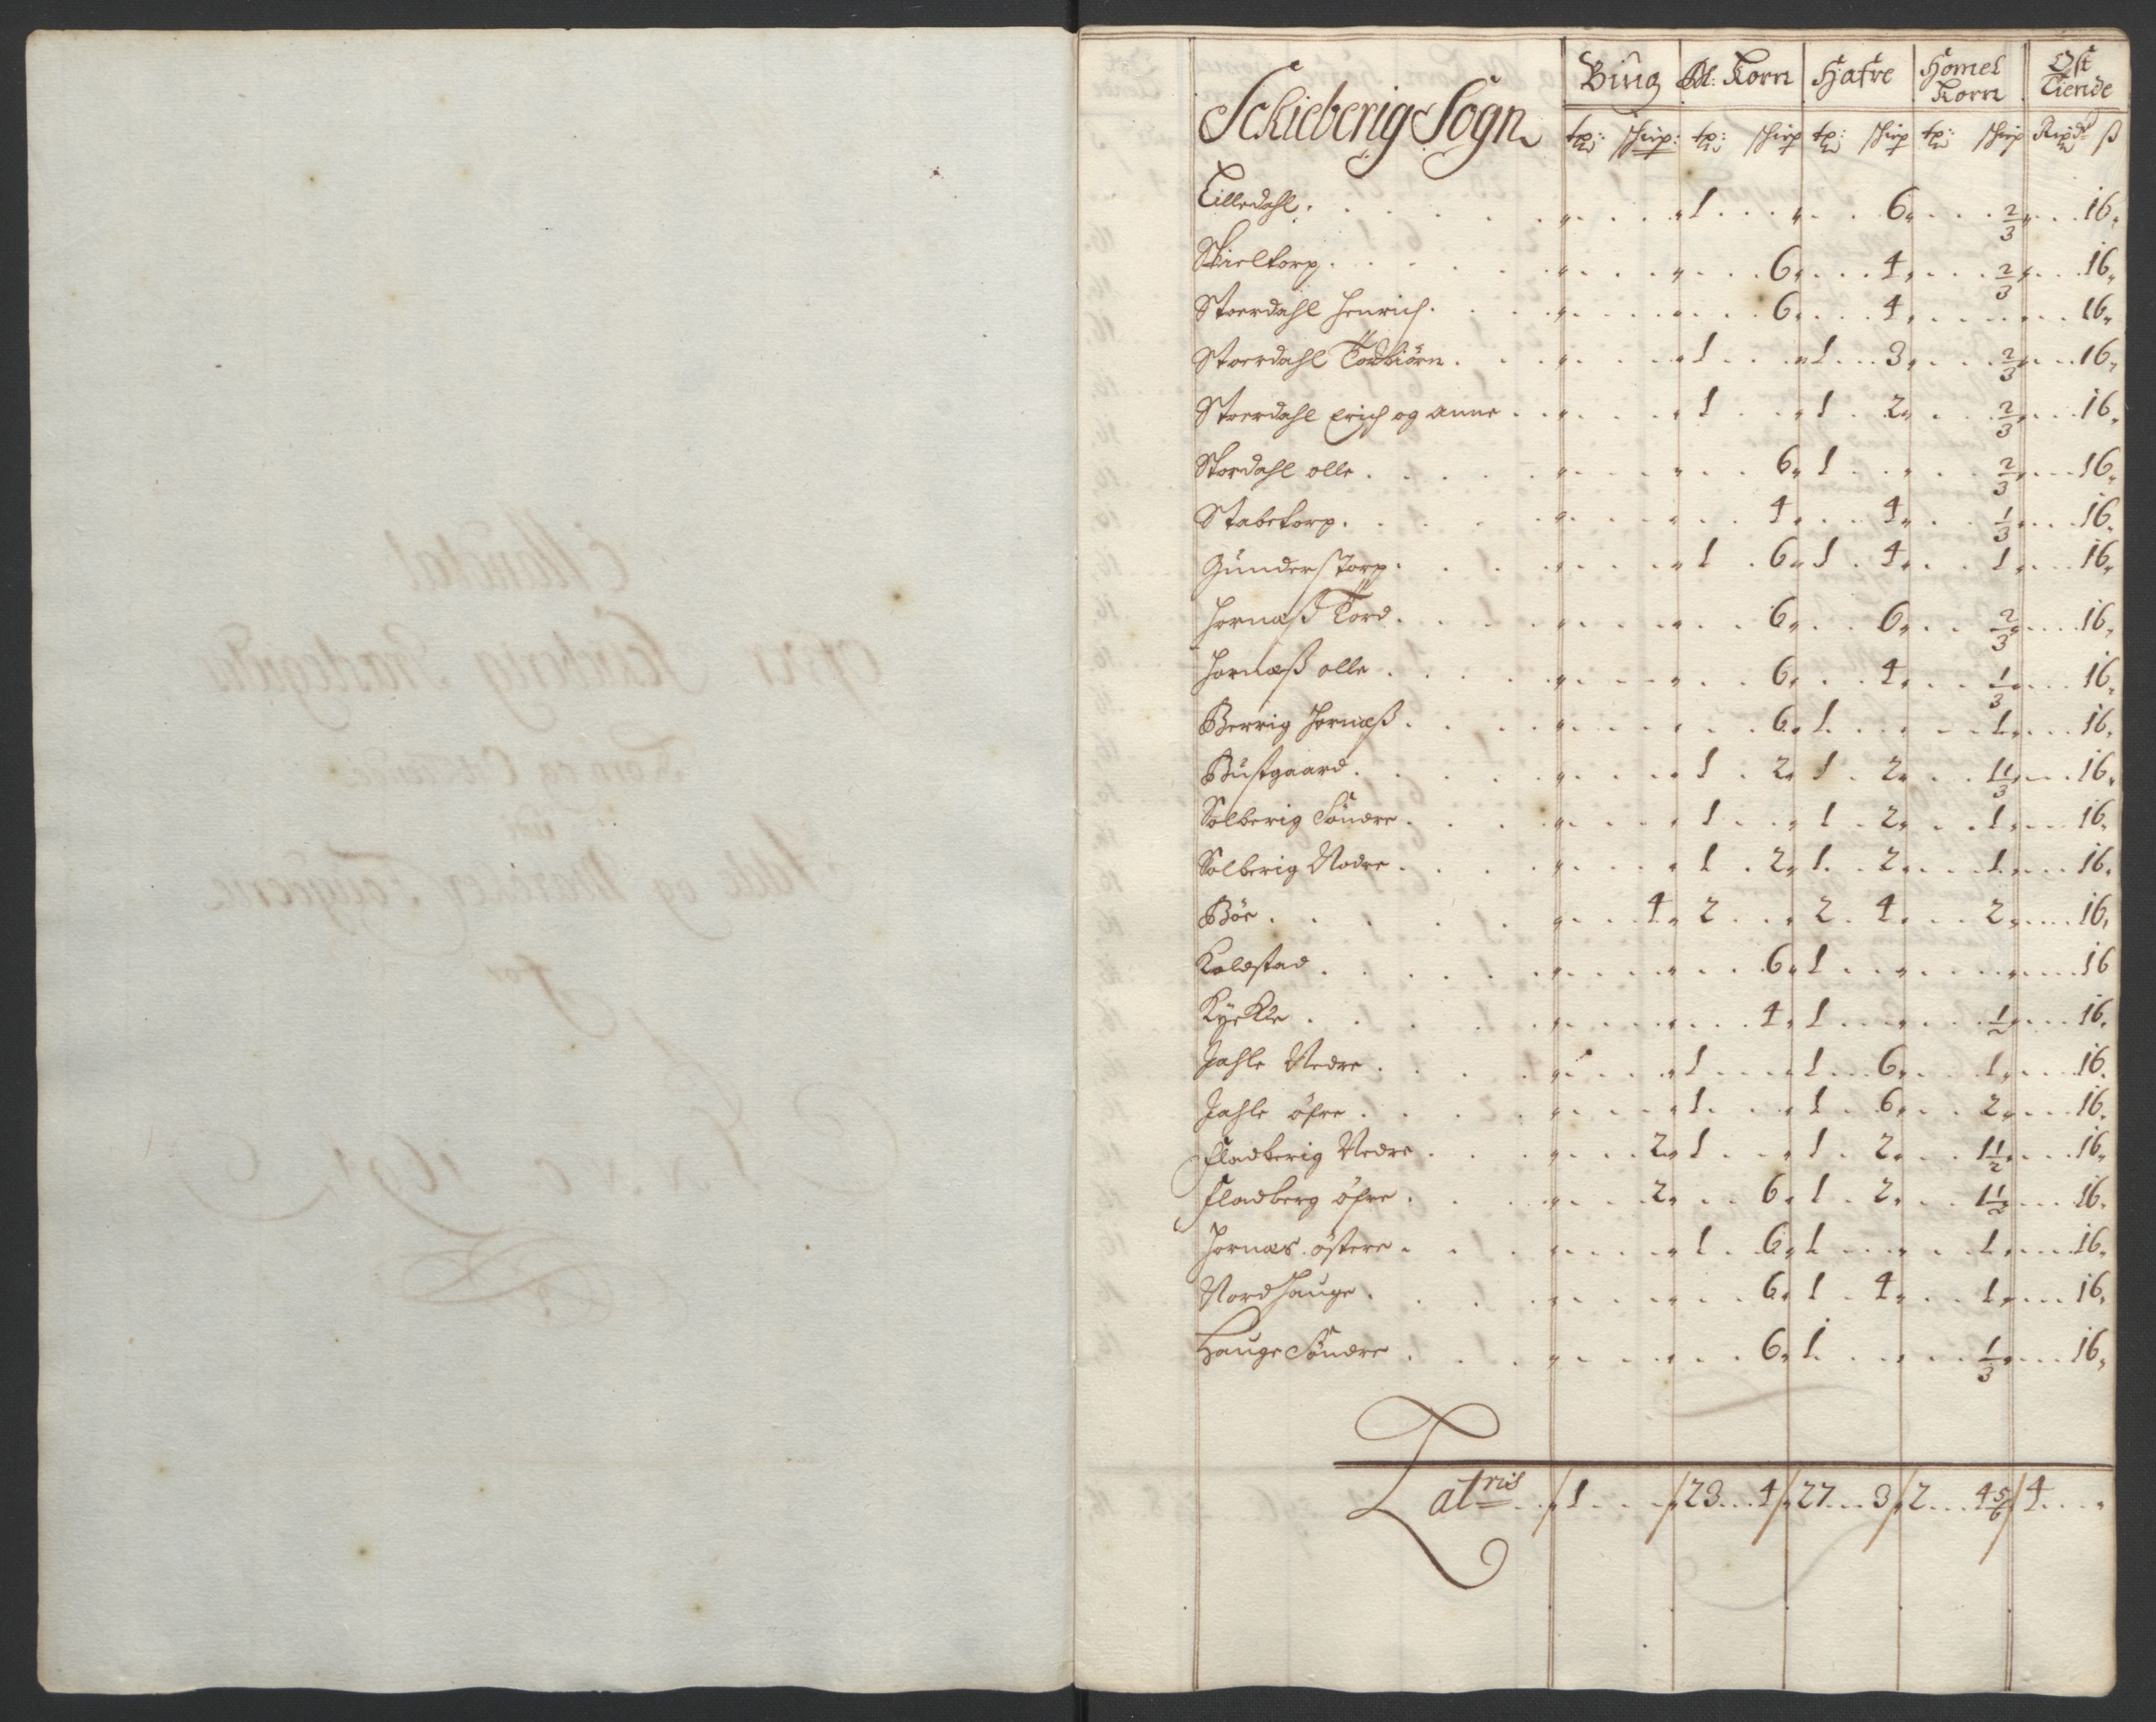 Schieberig Sogn
Biug Bl: Korn Hafre Homel Korn Ost Tiende
tr: schiep: tr: schiep tr: schiep tr: schiep Rixdr ß
Tilledahl . . . „ . . . „ 1 . . . „ . . 6 „ . . . 2/3 „ . . . 16 „
Skieltorp . . . „ . . . „ . . . 6 „ . . . 4 „ . . . 2/3 „ . . . 16 „
Stoerdahl Henrich . . . „ . . . „ . . . 6 „ . . . 4 „ . . . . . . 16 „
Stoerdahl Torbiörn . . . „ . . . „ 1 . . . „ 1 . . . 3 „ . . . 2/3 „ . . . 16 „
Stoerdahl Erich og Anne . . . „ . . . „ 1 . . . „ 1 . 2 „ . . . 2/3 „ . . . 16 „
Stordahl olle . . . „ . . . „ . . . 6 „ 1 . . . „ . . . 2/3 „ . . . 16 „
Stabetorp . . . „ . . . „ . . . 4 „ . . . 4 „ . . . 1/3 „ . . . 16 „
Gunderstorp . . . „ . . . „ 1 . 6 „ 1 . 4 „ . . . 1 „ . . . 16 „
Hornæß Tord . . . „ . . . „ . . . 6 „ . . . 6 „ . . . 2/3 „ . . . 16 „
Hornæß olle . . . „ . . . „ . . . 6 „ . . . 4 „ . . . 1/3 „ . . . 16 „
Berrig Hornæß . . . „ . . . „ . . . 6 „ 1 . . . „ . . . 1 „ . . . 16 „
Bustgaard . . . „ . . . „ 1 . 2 „ 1 . 2 „ . . . 1 1/3 „ . . . 16 „
Solberig Söndre . . . „ . . . „ 1 . . . „ 1 . 2 „ . . . 1 „ . . . 16 „
Solberig Nodre . . . „ . . . „ 1 . 2 „ 1 . 2 „ . . . 1 „ . . . 16 „
Böe . . . „ . . . 4 „ 2 . . . „ 2 . 4 „ . . . 2 „ . . . 16 „
Koldstad . . . „ . . . „ . . . 6 „ 1 . . . „ . . . „ . . . 16
Kyekle . . . „ . . . „ . . . 4 „ 1 . . . „ . . . 1/2 „ . . . 16 „
Jahle Nedre . . . „ . . . „ 1 . . . „ 1 . . . 6 „ . . . 1 „ . . . 16 „
Jahle öfre . . . „ . . . „ 1 . . . „ 1 . 6 „ . . . 2 „ . . . 16 „
Fladberig Nedre . . . „ . . . 2 „ 1 . . . „ 1 . 2 „ . . . 1 1/2 „ . . . 16 „
Fladberg öfre . . . „ . . . 2 „ . . . 6 „ 1 . 2 „ . . . 1 1/2 „ . . . 16 „
Hornæs östere . . . „ . . . „ 1 . 6 „ 1 . . . „ . . . 1 „ . . . 16 „
Nordhauge . . . „ . . . „ . . . 6 „ 1 . 4 „ . . . 1 „ . . . 16 „
Hauge Söndre . . . „ . . . „ . . . 6 „ 1 . . . „ . . . 1/3 „ . . . 16 „
Latris . . „ 1 . . . „ 23 . . . 4 „ 27 . . . 3 „ 2 . . . 4 5/6 4 . . . „